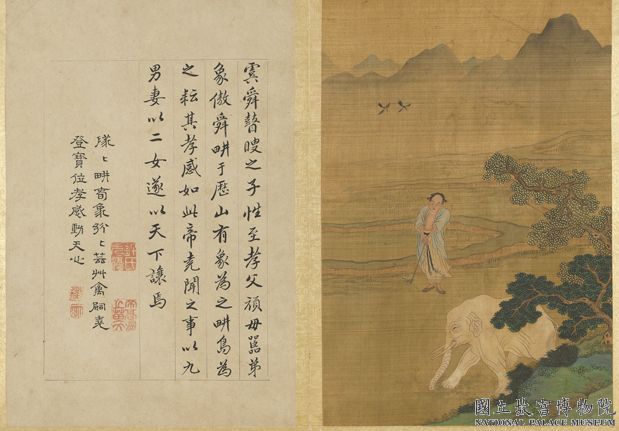 虞舜瞽瞍之子性至孝父頑母嚚弟
象傲舜畊于歷山有象為之畊鳥為
之耘其孝感如此帝堯聞之事以九
男妻以二女遂以天下讓焉
隊〻畊萅象紛〻芸艸禽嗣堯
登寶位孝感動天心
國立故宮博物院
NATIONAL PALACE MUSEUM